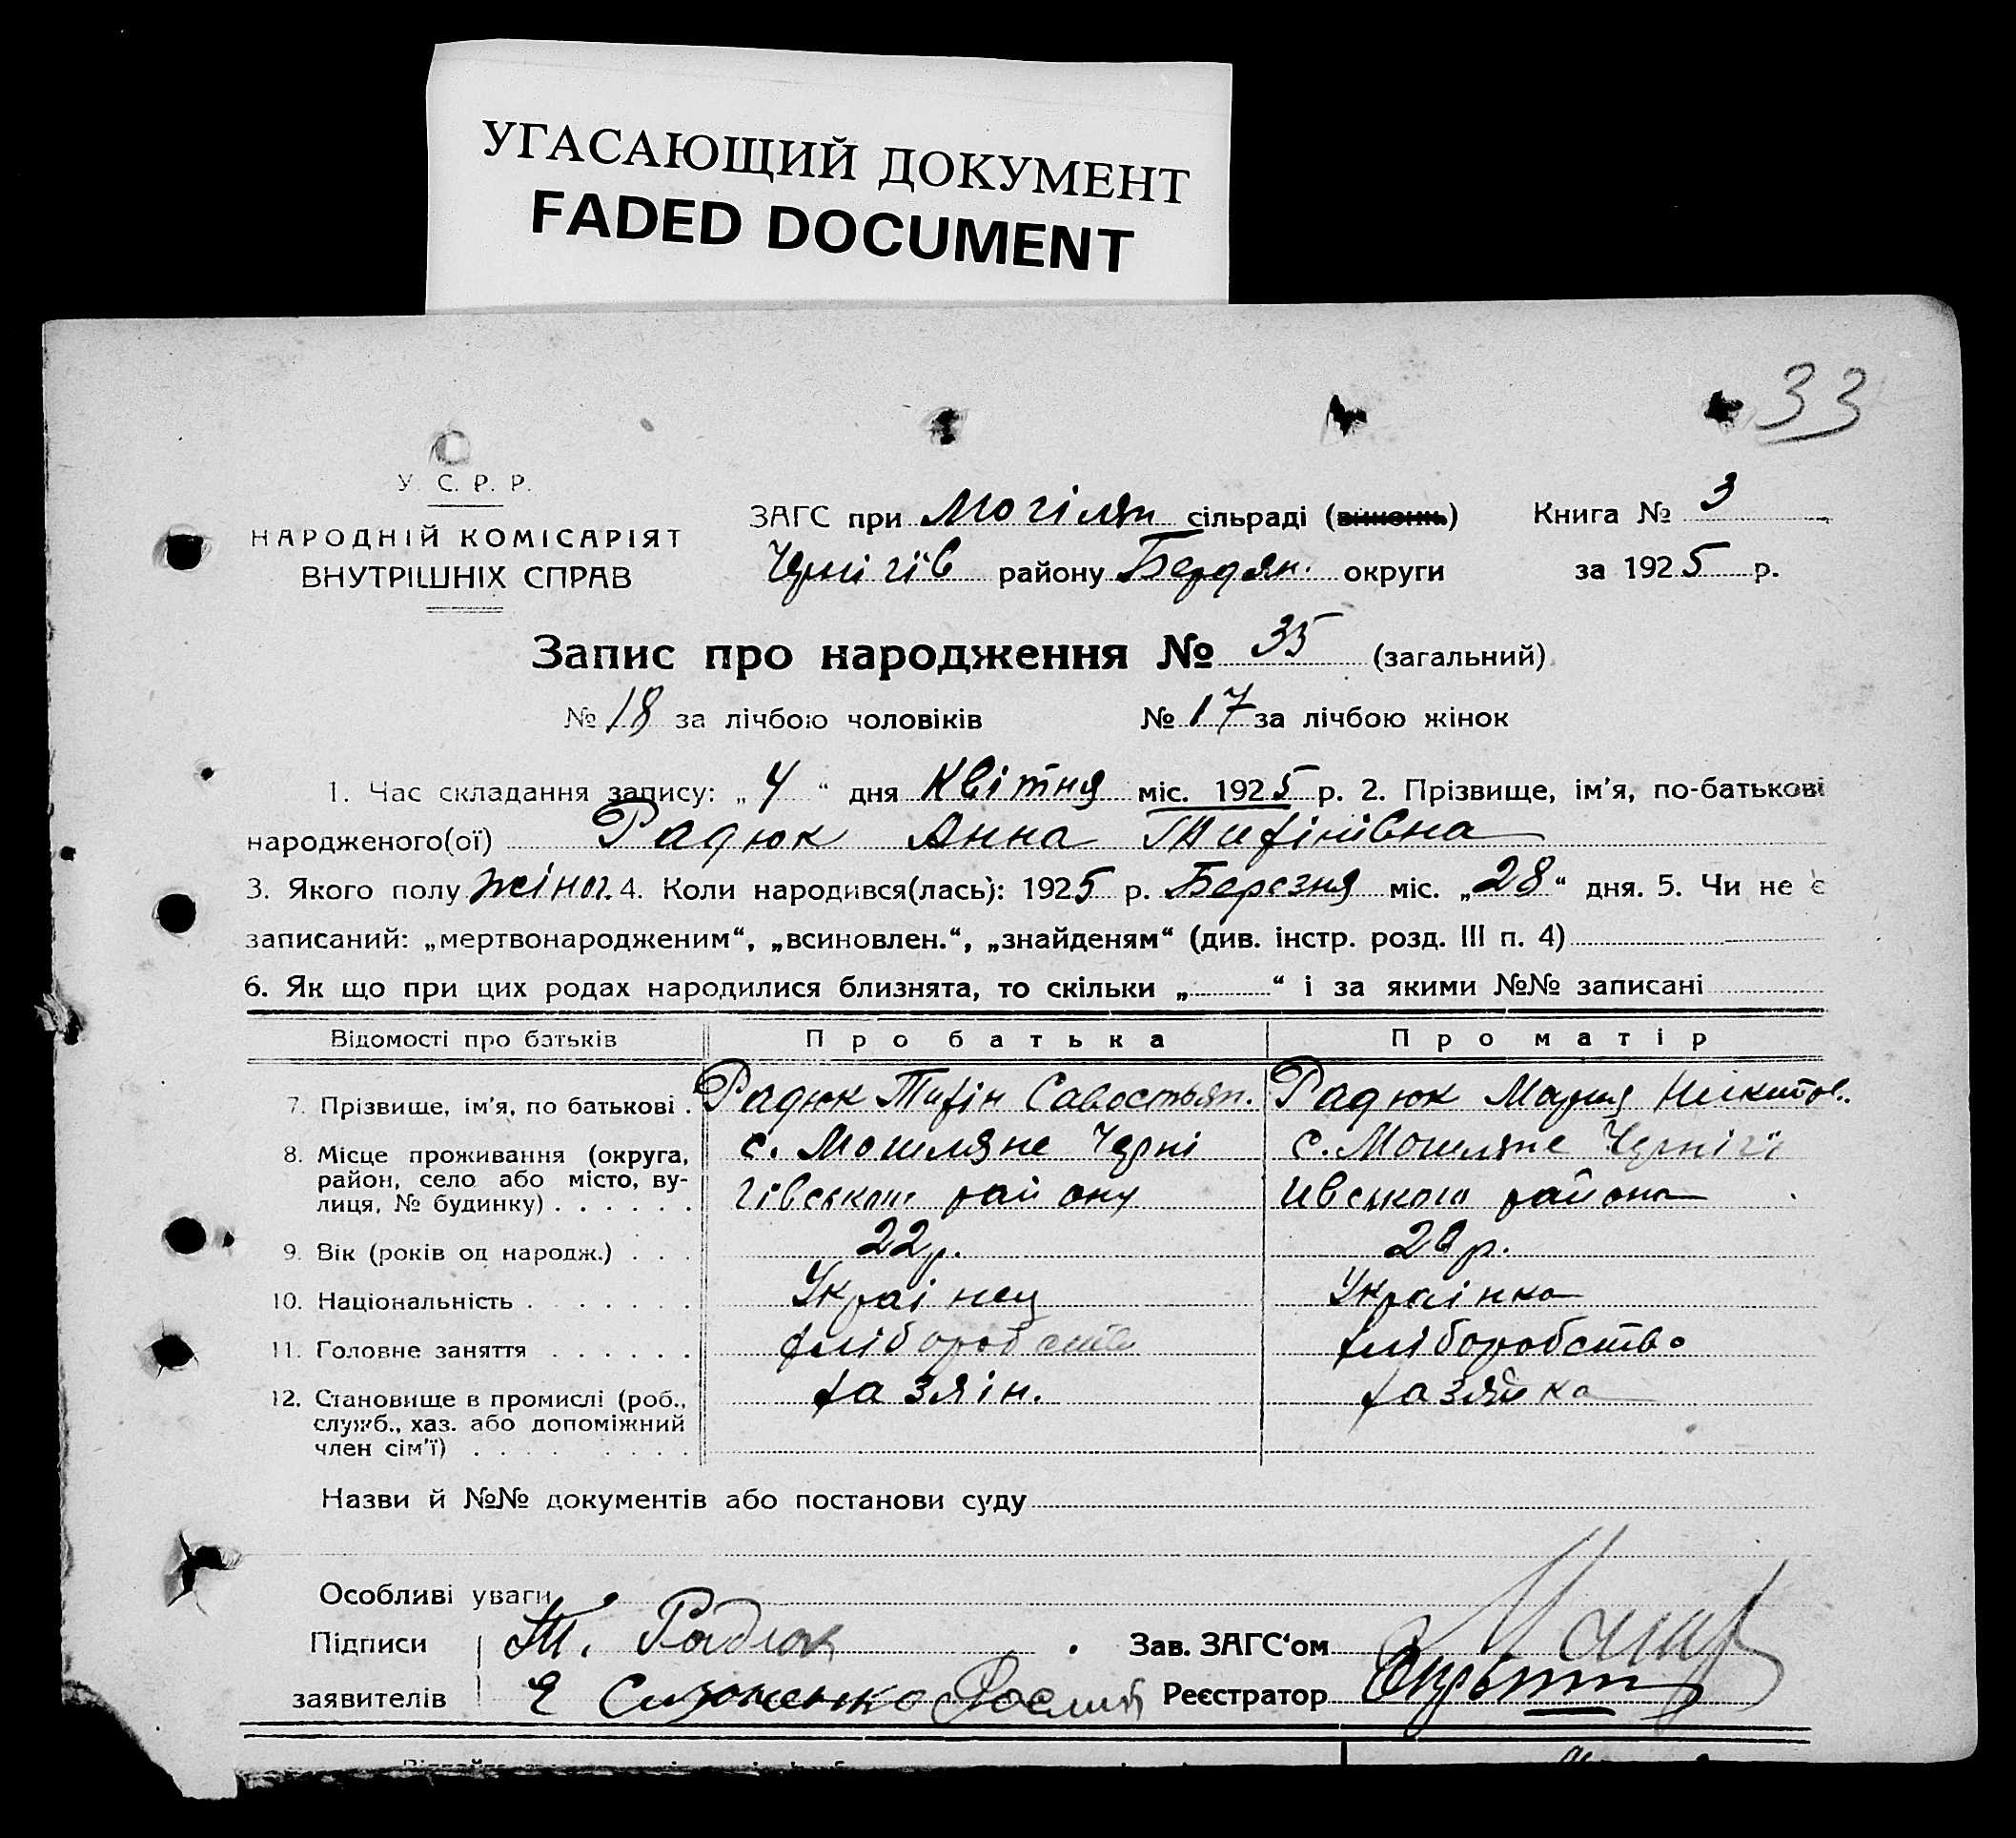 УГАСАЮЩИЙ ДОКУМЕНТ
FADED DOCUMENT
33
У. С. Р. Р.
НАРОДНІЙ КОМІСАРІЯТ
ВНУТРІШНІХ СПРАВ
ЗАГС при Могілян сільраді (виконк) Книга № 3
Чернігів району Бердян. округи за 1925 р.
Запис про народження № 35 (загальний)
№ 18 за лічбою чоловіків № 17 за лічбою жінок
1. Час складання запису: „4“ дня Квітня міс. 1925 р. 2. Прізвище, ім'я, по-батькові
народженого(ої) Радюк Анна Тифінівна
3. Якого полу жіноч. 4. Коли народився(лась): 1925 р. Березня міс. „28“ дня. 5. Чи не є
записаний: „мертвонародженим“, „всиновлен.“, „знайденям“ (див. інстр. розд. III п. 4)
6. Як що при цих родах народилися близнята, то скільки „ “ і за якими №№ записані
Відомості про батьків Про батька Про матір
7. Прізвище, ім'я, по батькові . Радюк Тифін Савостьян. Радюк Мария Никитов.
8. Місце проживання (округа, с. Могиляне Черні с. Могиляне Чернігі
район, село або місто, ву-
лиця, № будинку) . . . . . . гівського району ивського района
9. Вік (років од народж.) . . . 22 р. 20 р.
10. Національність . . . . . . . Украінец Украінка
11. Головне заняття . . . . . . хліборобство хліборобство
12. Становище в промислі (роб., хазяін. хазяйка
служб., хаз. або допоміжний
член сім'ї) . . . . . . . .
Назви й №№ документів або постанови суду
Особливі уваги
Підписи Т. Радюк Зав. ЗАГС'ом
заявителів Реєстратор